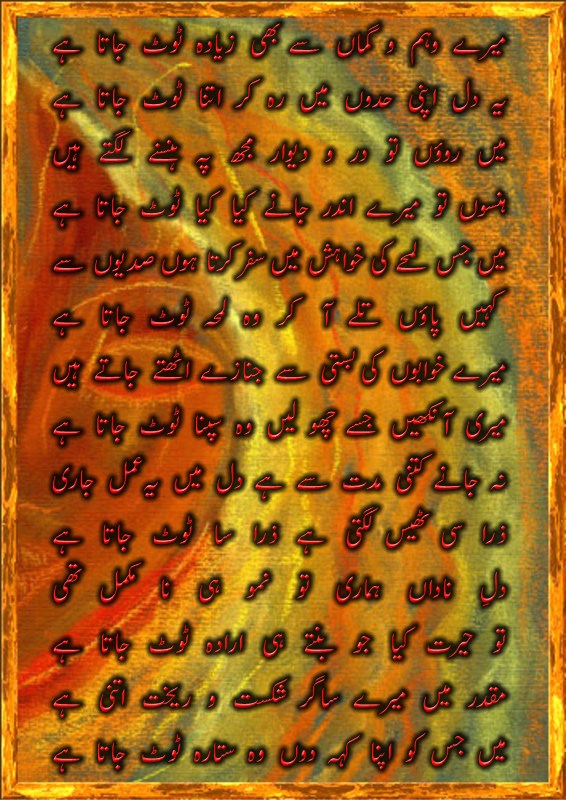 میرے وہم و گماں سے بھی زیادہ ٹوٹ جاتا ہے
یہ دل اپنی حدوں میں رہ کر اتنا ٹوٹ جاتا ہے
میں روؤں تو در و دیوار مجھ پہ ہنسنے لگتے ہیں
ہنسوں تو میرے اندر جانے کیا کیا ٹوٹ جاتا ہے
میں جس لمحے کی خواہش میں سفر کرتا ہوں صدیوں سے
کہیں پاؤں تلے آ کر وہ لمحہ ٹوٹ جاتا ہے
میرے خوابوں کی بستی سے جنازے اٹھتے جاتے ہیں
میری آنکھیں جسے چھو لیں وہ سپنا ٹوٹ جاتا ہے
نہ جانے کتنی مدت سے ہے دل میں یہ عمل جاری
ذرا سی ٹھیس لگتی ہے ذرا سا ٹوٹ جاتا ہے
دلِ ناداں ہماری تو نمو ہی نا مکمل تھی
تو حیرت کیا جو بنتے ہی ارادہ ٹوٹ جاتا ہے
مقدر میں میرے ساگر شکست و ریخت اتنی ہے
میں جس کو اپنا کہہ دوں وہ ستارہ ٹوٹ جاتا ہے